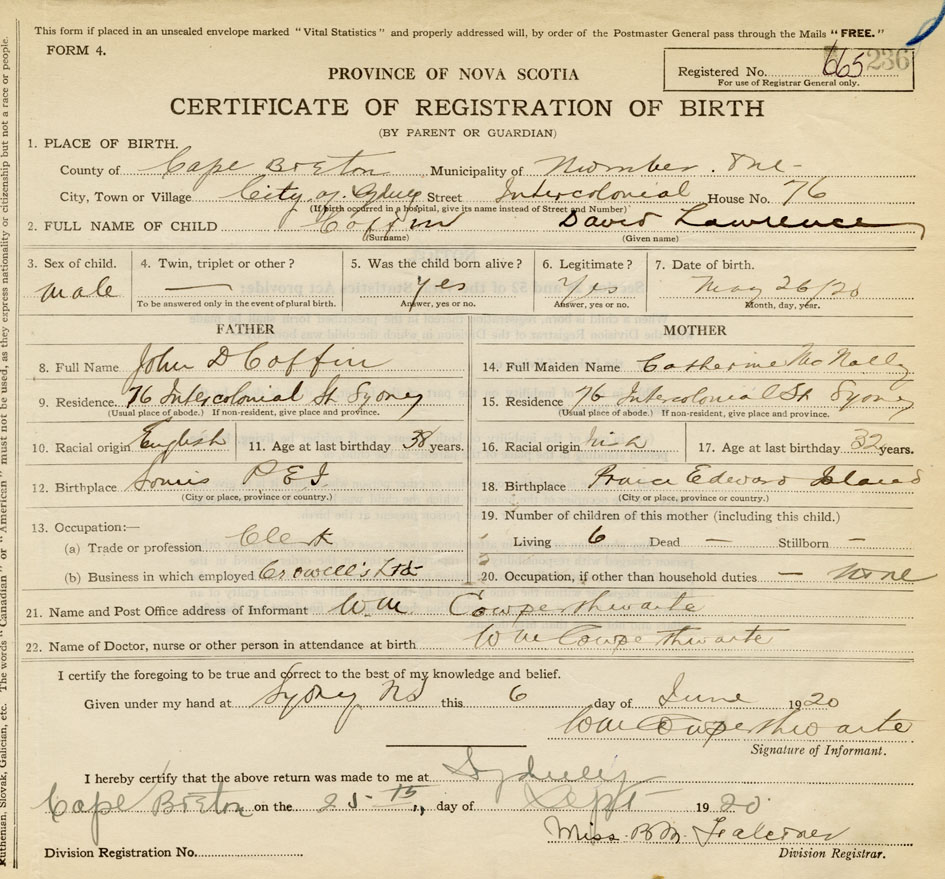 This form if placed in an unsealed envelope marked "Vital Statistics" and properly addressed will, by order of the Postmaster General pass through the Mails "FREE."
FORM 4.
Registered No. 665 236
For use of Registrar General only.
PROVINCE OF NOVA SCOTIA
CERTIFICATE OF REGISTRATION OF BIRTH
(BY PARENT OR GUARDIAN)
1. PLACE OF BIRTH.
County of Cape Breton Municipality of Number One
City, Town or Village City of Sydney Street Intercolonial House No. 76
(If birth occurred in a hospital, give its name instead of Street and Number)
2. FULL NAME OF CHILD Coffin David Lawrence
(Surname) (Given name)
3. Sex of child. 4. Twin, triplet or other? 5. Was the child born alive? 6. Legitimate? 7. Date of birth.
male — Yes Yes May 26/20
To be answered only in the event of plural birth. Answer, yes or no. Answer, yes or no. Month, day, year.
FATHER
8. Full Name John D Coffin
9. Residence 76 Intercolonial St Sydney
(Usual place of abode.) If non-resident, give place and province.
10. Racial origin English 11. Age at last birthday 38 years.
12. Birthplace Souris P E I
(City or place, province or country.)
13. Occupation:—
(a) Trade or profession Clerk
(b) Business in which employed Crowell's Ltd
MOTHER
14. Full Maiden Name Catherine McNally
15. Residence 76 Intercolonial St Sydney
(Usual place of abode.) If non-resident, give place and province.
16. Racial origin Irish 17. Age at last birthday 32 years.
18. Birthplace Prince Edward Island
(City or place, province or country.)
19. Number of children of this mother (including this child.)
Living 6 Dead — Stillborn —
20. Occupation, if other than household duties — none
21. Name and Post Office address of Informant Wm Cowperthwaite
22. Name of Doctor, nurse or other person in attendance at birth Wm Cowperthwaite
I certify the foregoing to be true and correct to the best of my knowledge and belief.
Given under my hand at Sydney NS this 6 day of June 1920
Wm Cowperthwaite
Signature of Informant.
I hereby certify that the above return was made to me at Sydney
Cape Breton on the 25th day of Sept 1920
Miss B M Falconer
Division Registrar.
Division Registration No.
Ruthenian, Slovak, Galician, etc. The words "Canadian" or "American" must not be used, as they express nationality or citizenship but not a race or people.